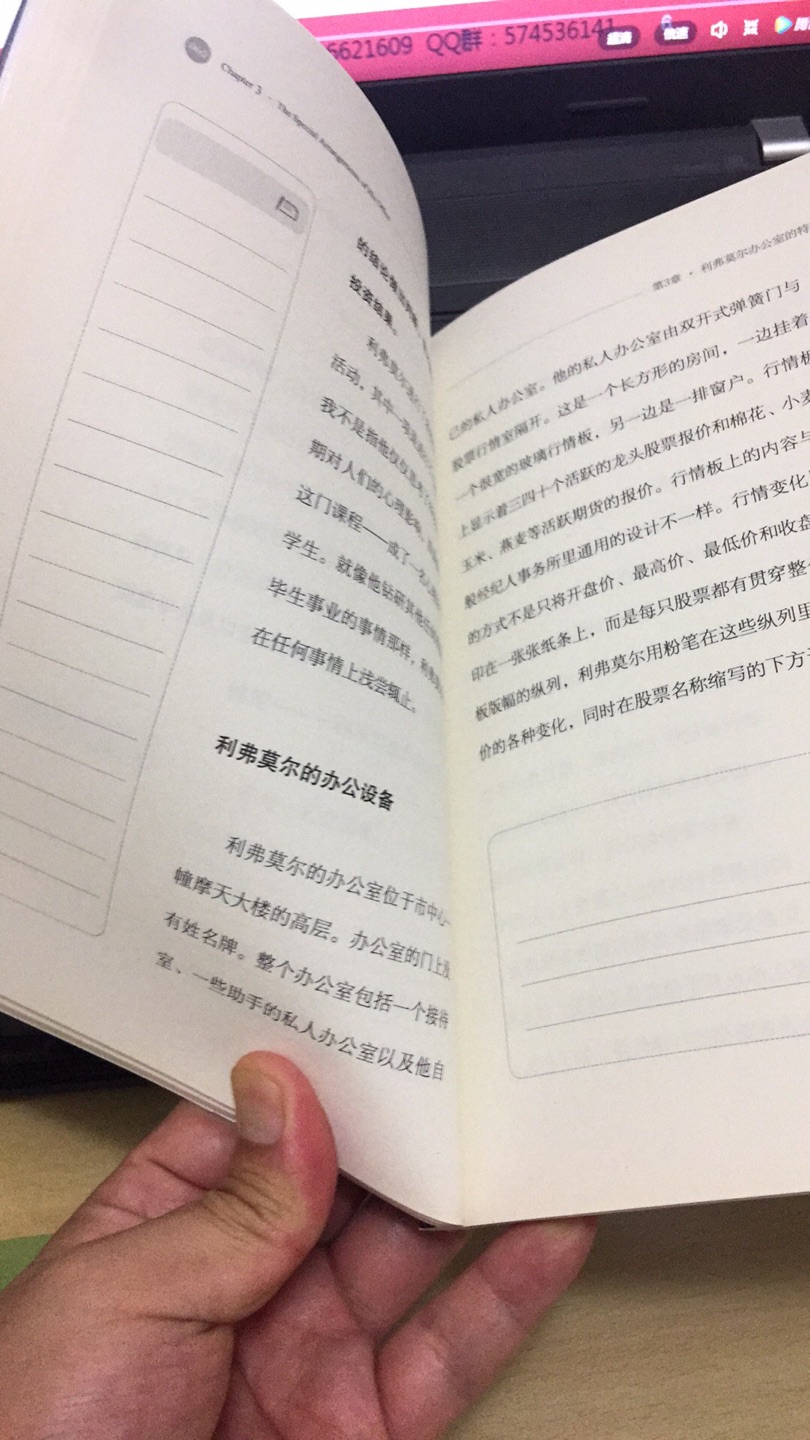 6621609 QQ群：574536141
超清
快速
Chapter 3 · The Special Arrangements of
投资结果。
活动，其中一
我不是指他仅仅
期对人们的心理影响
这门课程——成了一名
学生。就像他钻研其他
毕生事业的事情那样，利弗
在任何事情上浅尝辄止。
利弗莫尔的办公设备
利弗莫尔的办公室位于市中心一
幢摩天大楼的高层。办公室的门上没
有姓名牌。整个办公室包括一个接待
室、一些助手的私人办公室以及他自
第3章 · 利弗莫尔办公室的特
己的私人办公室。他的私人办公室由双开式弹簧门与
股票行情室隔开。这是一个长方形的房间，一边挂着
一个很宽的玻璃行情板，另一边是一排窗户。行情板
上显示着三四十个活跃的龙头股票报价和棉花、小麦
玉米、燕麦等活跃期货的报价。行情板上的内容与
般经纪人事务所里通用的设计不一样。行情变化
的方式不是只将开盘价、最高价、最低价和收盘
印在一张张纸条上，而是每只股票都有贯穿整
板版幅的纵列，利弗莫尔用粉笔在这些纵列里
价的各种变化，同时在股票名称缩写的下方